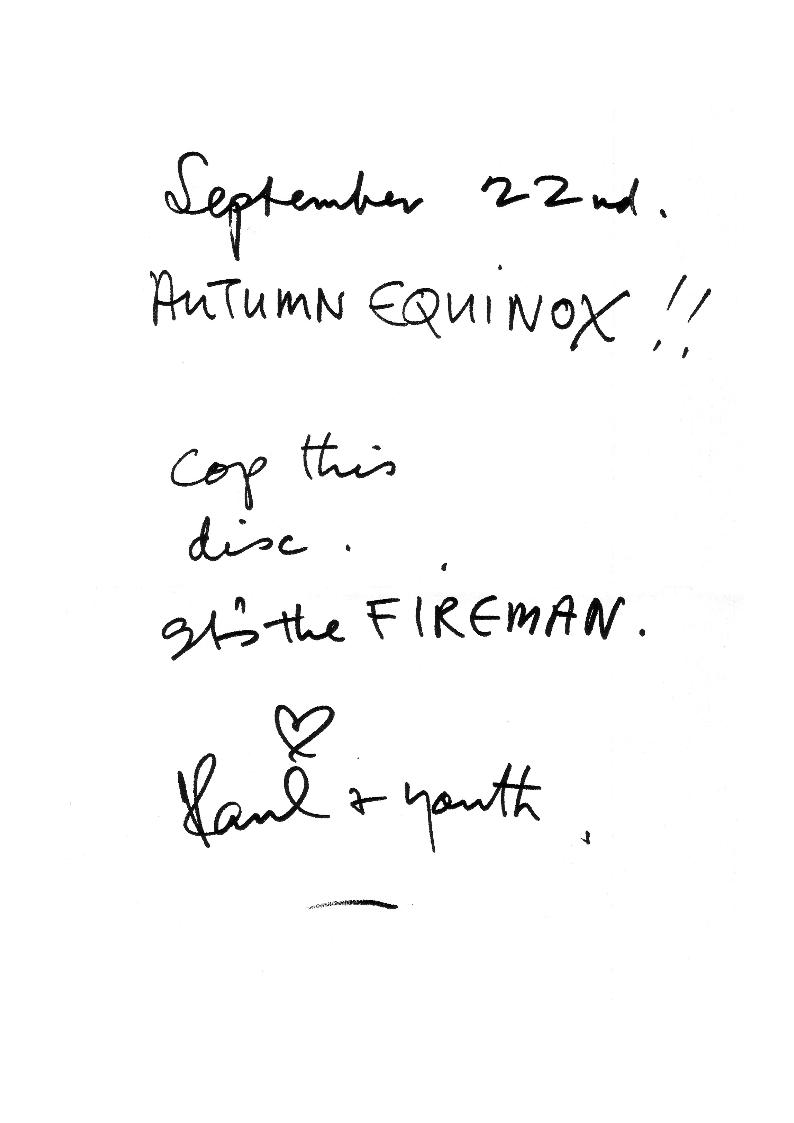 September 22nd.
AUTUMN EQUINOX!!
Cop this
disc.
It's the FIREMAN.
Paul + youth.